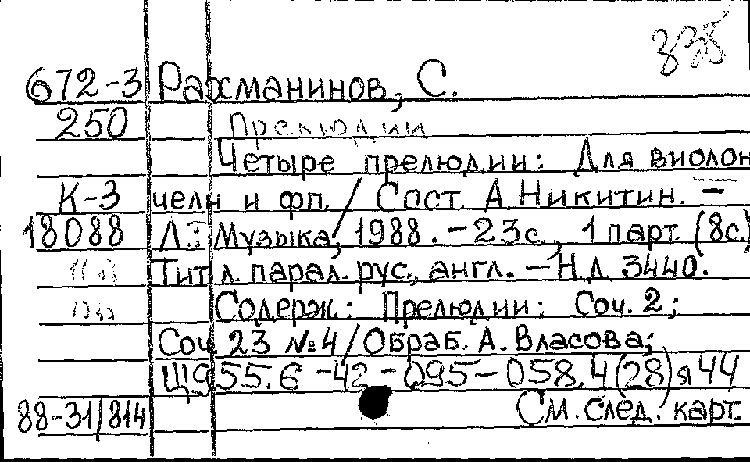 835
672-3 Рахманинов, С.
250 Прелюдии
Четыре прелюдии: Для виолон
К-3 чели и фп. / Сост. А. Никитин. –
18088 Л.: Музыка, 1988. – 23с., 1 парт. (8с.)
Тит. л. парал. рус., англ. – Н.д. 3440.
Содерж.: Прелюдии: Соч. 2;
Соч. 23 №4 / Обраб. А. Власова;
Щ955.6-42-095-058.4(28)я44
88-31/814 См. след. карт.